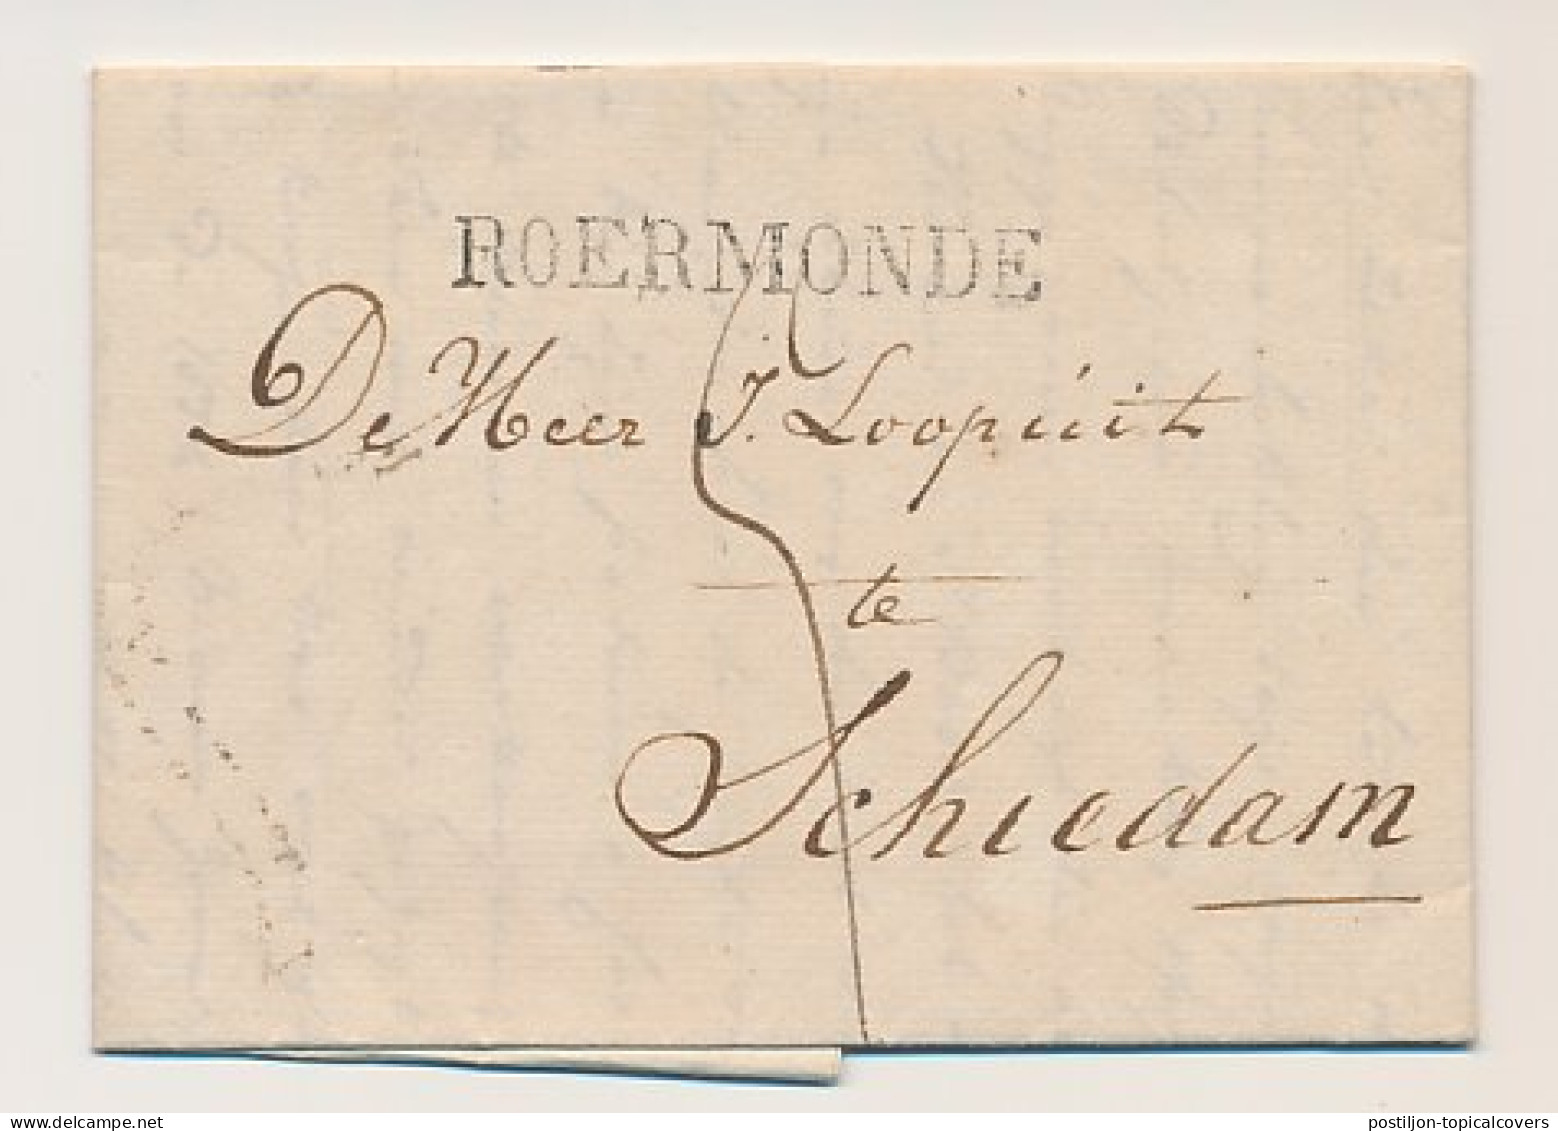 ROERMONDE
De Heer J. Loopuit
te
Schiedam
delcampe.net
postiljon-topicalcovers